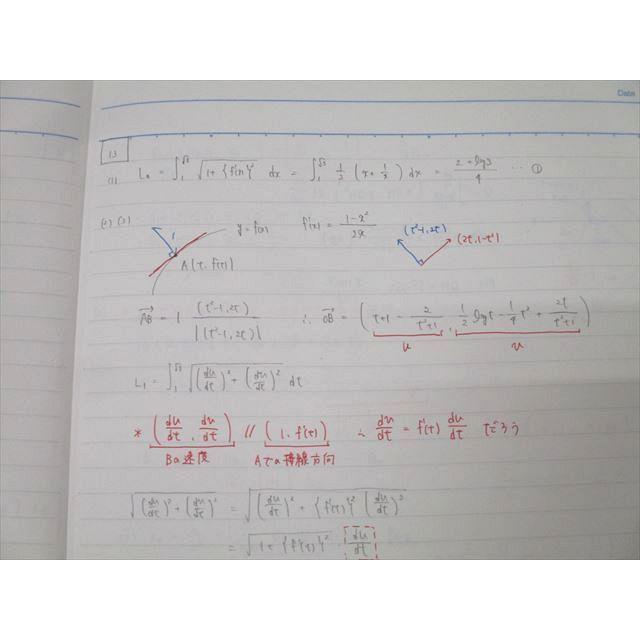 Date
13
(1) L₀ = ∫₁^√3 √(1+{f'(x)}²) dx = ∫₁^√3 1/2 (x + 1/x) dx = (2+log3)/4 ... ①
(2)(3) y=f(x) f'(x) = (1-x²)/2x (t²-1, 2t) (2t, 1-t²)
1
A(t, f(t))
AB→ = 1 (t²-1, 2t)/|(t²-1, 2t)| ∴ OB→ = (t+1 - 2/(t²+1), 1/2 logt - 1/4 t² + 2t/(t²+1))
u v
L₁ = ∫₁^√3 √((du/dt)² + (dv/dt)²) dt
* (du/dt, dv/dt) // (1, f'(t)) ∴ dv/dt = f'(t) du/dt であろう
Bの速度 Aでの接線方向
√((du/dt)² + (dv/dt)²) = √((du/dt)² + {f'(t)}² (du/dt)²)
= √(1+{f'(t)}²) du/dt